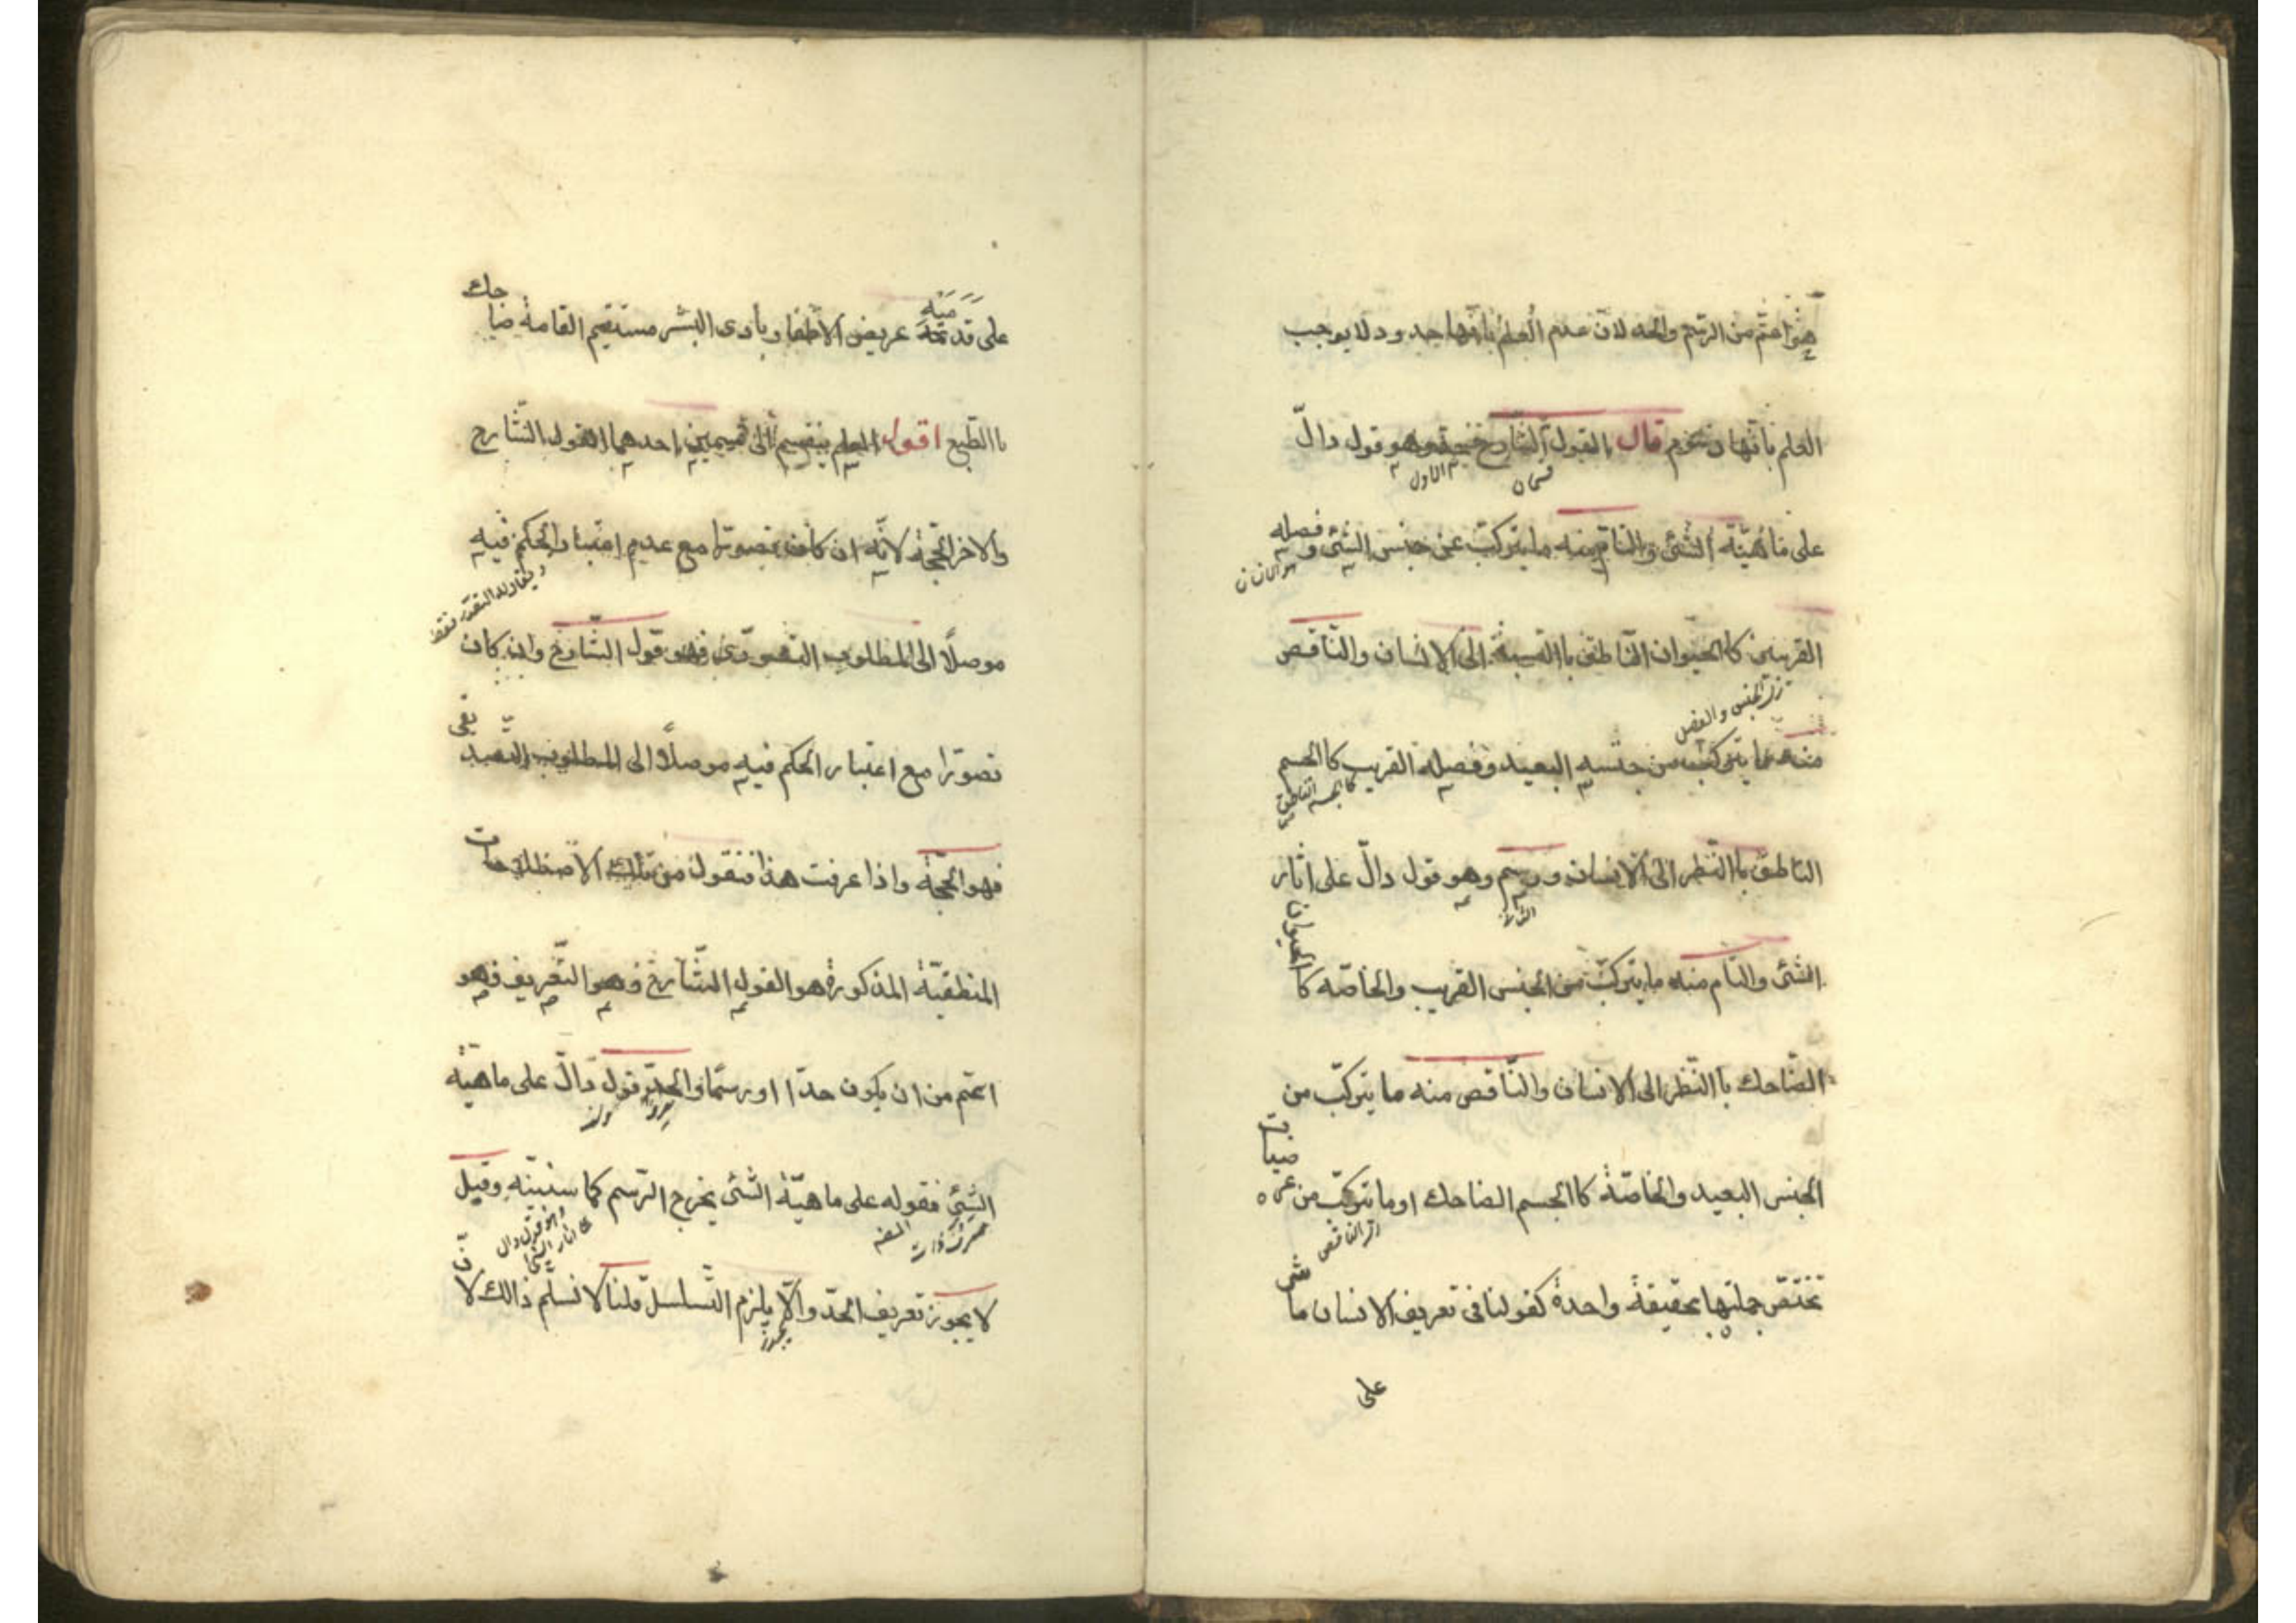 هو اعتم من الرسم والحد لان عدم العلم بانها حدود لا يوجب
العلم بانها رسوم قال القول الشارح حد وهو قول دالّ
قسمان
الاول
على ماهيّة الشئ والتام منه ما يتركبّ عن جنس الشئ وفصله
القريبين كالحيوان النّاطق باالنسبة الى الانسان والنّاقص
من الجنس والفصل
منه ما يتركبّ من جنسه البعيد وفصله القريب كاالجسم
كالجسم الناطق
النّاطق باالنّظر الى الانسان ورسم وهو قول دالّ على اثار
الثانى
الشئ والتام منه ما يتركبّ من الجنس القريب والخاصّه كا
الحيوان
الضّاحك باالنّظر الى الانسان والنّاقص منه ما يتركبّ من
الجنس البعيد والخاصّة كاالجسم الضاحك او ما يتركبّ من عر
ضيات
تختصّ جملتها بحقيقة واحدة كقولنا فى تعريف الانسان ما
شى
على
على قدميه عريض الاظفار بادى البشر مستقيم القامة ضا
حك
باالطّبع اقول العلم ينقسم الى قسمين احدهما القول الشّارح
والاخر الحجّة لانّه ان كان تصورا مع عدم اعتبار الحكم فيه
موصلًا الى المطلوب التصورّى فهو قول الشّارح وان كان
تصورّا مع اعتبار الحكم فيه موصلًا الى المطلوب التّصد
يقى
فهو الحجّة واذا عرفت هذا فنقول من تلك الاصطلاحا
ت
المنطقيّة المذكورة هو القول الشّارح وهو التّعريف فهو
اعتم من ان يكون حدّا او رسمّا والحدّ قول دالّ على ماهيّة
الشّئ فقوله على ماهيّة الشّئ يخرج الرّسم كما سنبيّنه وقيل
وهو قول دال
على اثار الشئ
لا يجوز تعريف الحدّ والّا يلزم التّسلسل قلنا لا نسلّم ذالك لا
نّ